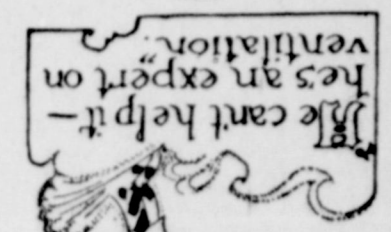 He can't help it —
he's an expert on
ventilation."